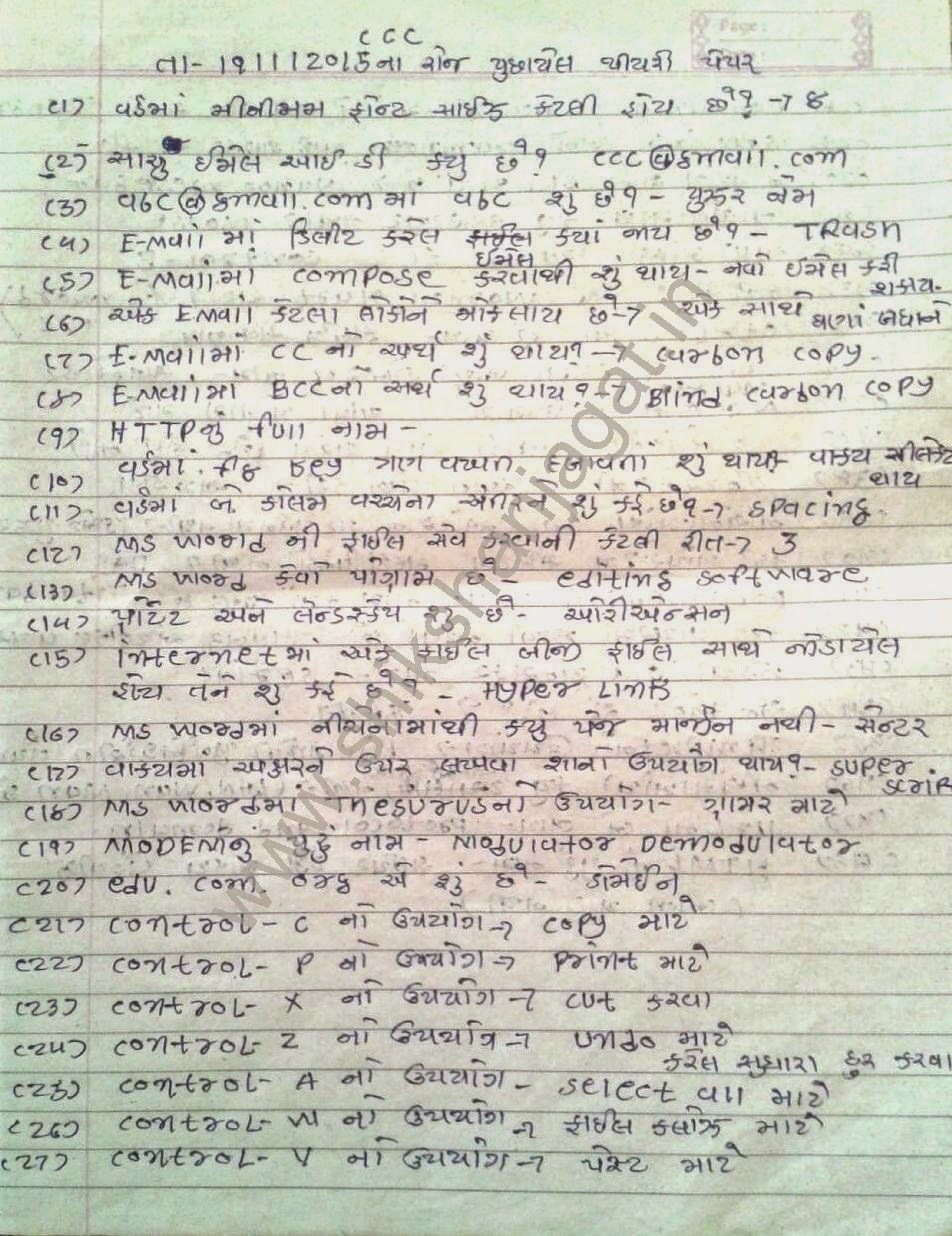 CCC
તા- 19/11/2015ના રોજ પુછાયેલ થીયરી પેપર
(1) વર્ડમાં મીનીમમ ફોન્ટ સાઈઝ કેટલી હોય છે? → 8
(2) સાચુ ઈમેલ આઈ ડી ક્યું છે? CCC@gmail.com
(3) abc@gmail.com માં abc શું છે? - યુઝર નેમ
(4) E-mail માં ડિલીટ કરેલ ઈમેલ ક્યાં જાય છે? - TRash
(5) E-mailમાં compose કરવાથી શું થાય - નવો ઈમેલ કરી શકાય.
(6) એક Email કેટલા લોકોને મોકલાય છે → એક સાથે ઘણાં બધાને
(7) E-mailમાં CC નો અર્થ શું થાય? → carbon copy.
(8) E-mailમાં BCCનો અર્થ શું થાય? → Blind carbon copy
(9) HTTPનું full નામ -
(10) વર્ડમાં f8 key ત્રણ વખત દબાવતાં શું થાય - વાક્ય સીલેક્ટ થાય
(11) વર્ડમાં બે કોલમ વચ્ચેના અંતરને શું કહે છે? → spacing
(12) MS word ની ફાઈલ સેવ કરવાની કેટલી રીત → 3
(13) MS word કેવો પોગ્રામ છે - editing software
(14) પોર્ટેટ અને લેન્ડસ્કેપ શુ છે - ઓરીએન્સન
(15) internetમાં એક ફાઈલ બીજી ફાઈલ સાથે જોડાયેલ
હોય તેને શું કહે છે? - Hyper Link
(16) MS wordમાં નીચેનામાંથી ક્યું પેજ માર્જીન નથી - સેન્ટર
(17) વાક્યમાં અક્ષરને ઉપર લખવા શાનો ઉપયોગ થાય? - super script
(18) MS wordમાં Thesurusનો ઉપયોગ - ગ્રામર માટે
(19) MODEMનુ પુરું નામ - Modulator Demodulator
(20) edu. com. org એ શું છે - ડોમેઈન
(21) control - C નો ઉપયોગ → copy માટે
(22) control - P નો ઉપયોગ → print માટે
(23) control - X નો ઉપયોગ → cut કરવા
(24) control - Z નો ઉપયોગ → undo માટે
કરેલ સુધારા દુર કરવા
(25) control - A નો ઉપયોગ - select all માટે
(26) control - W નો ઉપયોગ → ફાઈલ ક્લોઝ માટે
(27) control - V નો ઉપયોગ → પેસ્ટ માટે
Page:
www.shikshanjagat.in